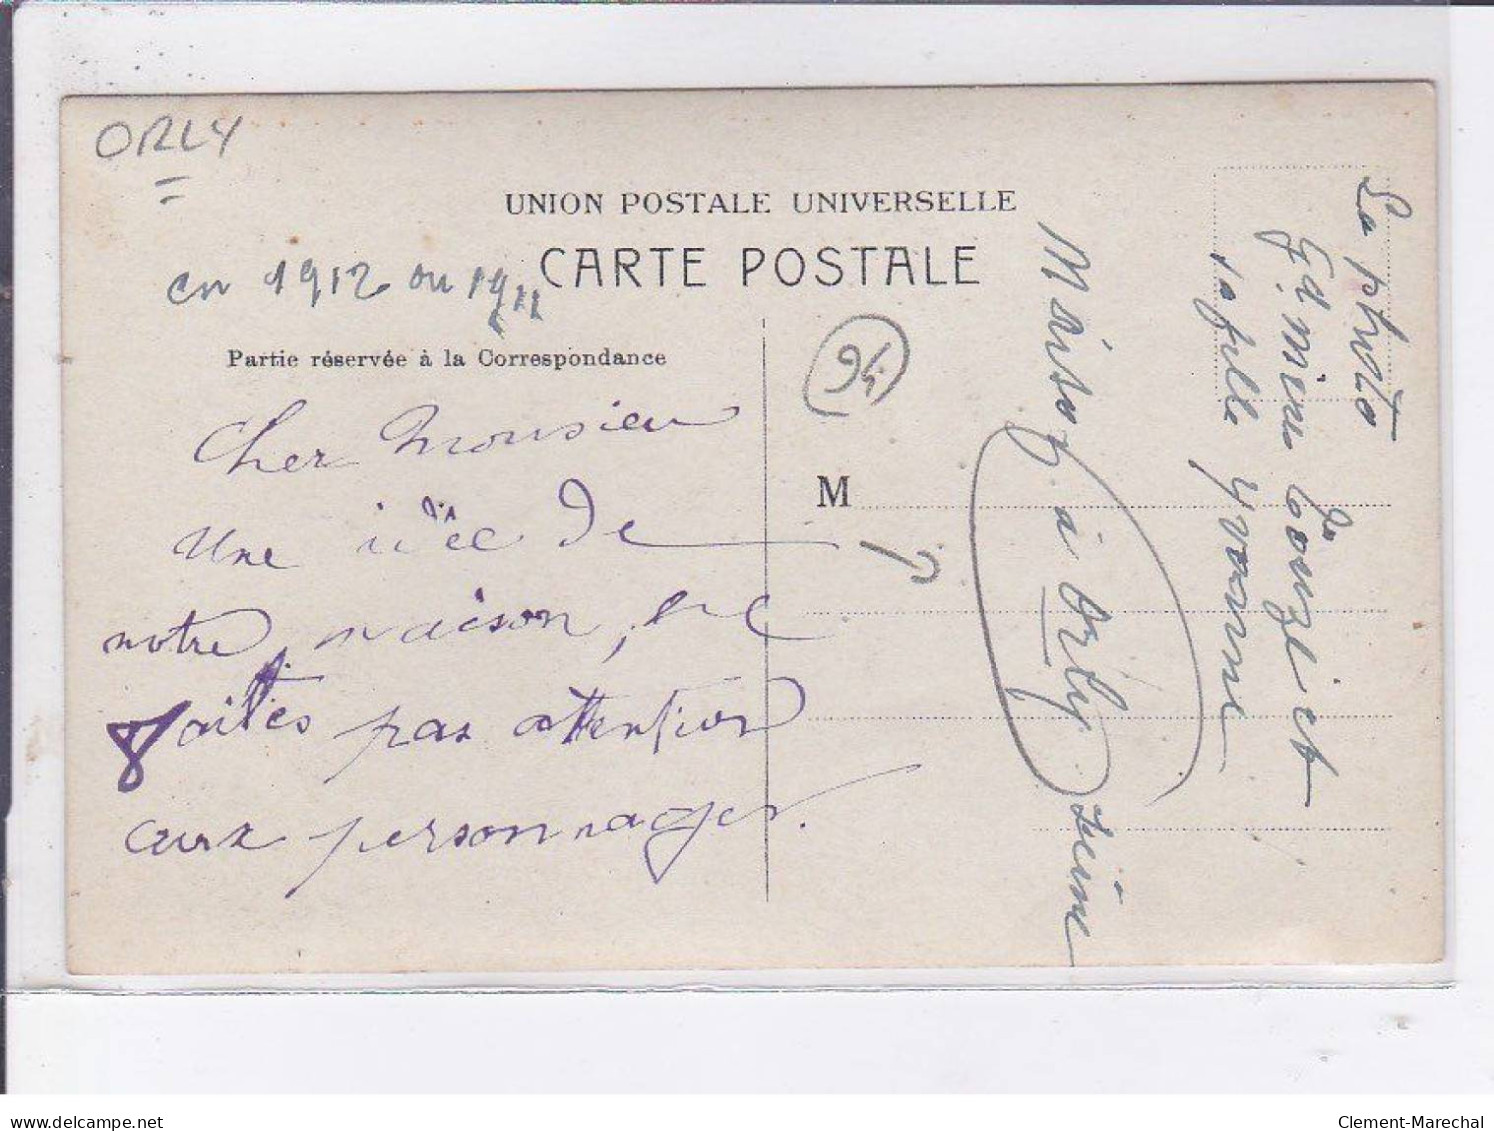 ORLY
UNION POSTALE UNIVERSELLE
CARTE POSTALE
en 1912 ou 1911
Partie réservée à la Correspondance
Cher Monsieur
une idée de
notre maison, ne
faites pas attention
aux personnages.
94
M
La photo
Gamin et
sa fille Yvonne
Maison à Orly Seine
delcampe.net
Clement-Marechal